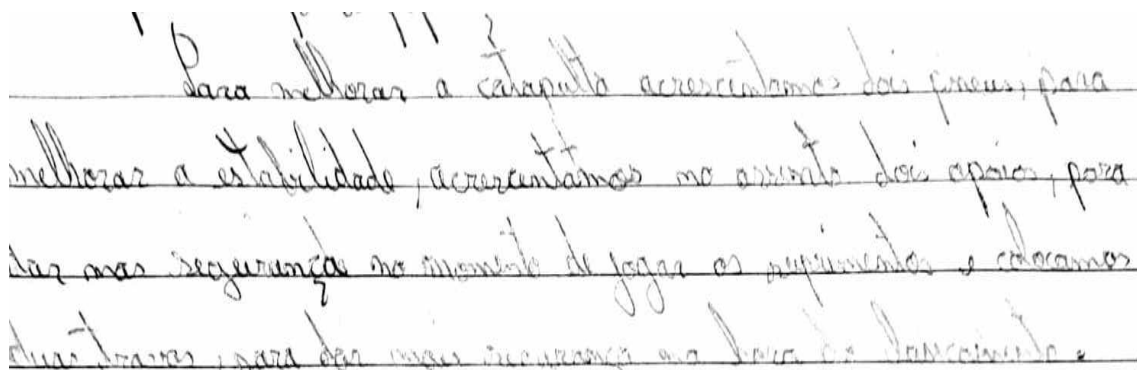 Para melhorar a catapulta acrescentamos dois pneus, para
melhorar a estabilidade, acrescentamos no assento dois apóios, para
dar mas segurança no momento de jogar os suprimentos e colocamos
duas travas, para dar mais segurança na hora do lançamento.